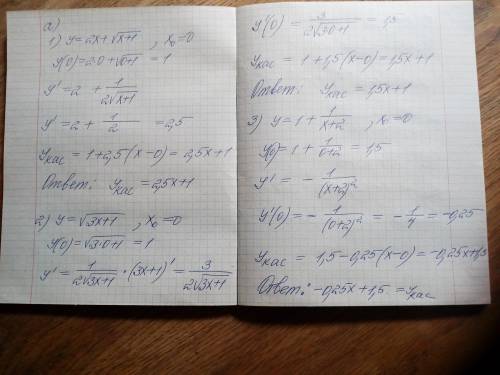 а)
1) y = 2x + √(x+1) , x₀ = 0
y(0) = 2·0 + √(0+1) = 1
y' = 2 + 1/(2√(x+1))
y' = 2 + 1/2 = 2,5
Yкас = 1 + 2,5(x-0) = 2,5x+1
Ответ: Yкас = 2,5x+1
2) y = √(3x+1) , x₀ = 0
y(0) = √(3·0+1) = 1
y' = 1/(2√(3x+1)) · (3x+1)' = 3/(2√(3x+1))
y'(0) = 3/(2√(3·0+1)) = 1,5
Yкас = 1 + 1,5(x-0) = 1,5x+1
Ответ: Yкас = 1,5x+1
3) y = 1 + 1/(x+2) , x₀ = 0
y(0) = 1 + 1/(0+2) = 1,5
y' = - 1/(x+2)²
y'(0) = - 1/(0+2)² = - 1/4 = -0,25
Yкас = 1,5 - 0,25(x-0) = -0,25x+1,5
Ответ: -0,25x+1,5 = Yкас